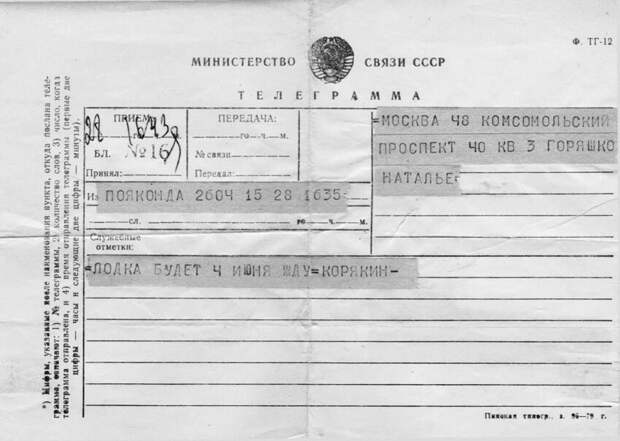 Ф. ТГ-12
МИНИСТЕРСТВО СВЯЗИ СССР
ТЕЛЕГРАММА
ПРИЕМ:
28 1643
БЛ. № 16
Принял:
ПЕРЕДАЧА:
го ч. м.
№ связи
Передал:
=МОСКВА 48 КОМСОМОЛЬСКИЙ
ПРОСПЕКТ 40 КВ 3 ГОРЯШКО
НАТАЛЬЕ=
Из ПОЯКОМДА 2604 15 28 1635=
сл. го ч. м.
Служебные
отметки:
=ЛОДКА БУДЕТ 4 ИЮНЯ ЖДУ=КОРЯКИН-
*) Цифры, указанные после наименования пункта, откуда послана теле-
грамма, означают: 1) № телеграммы, 2) количество слов, 3) число, когда
телеграмма отправлена, и 4) время отправления телеграммы (первые две
цифры — часы и следующие две цифры — минуты).
Пинская типогр., з. 96—79 г.